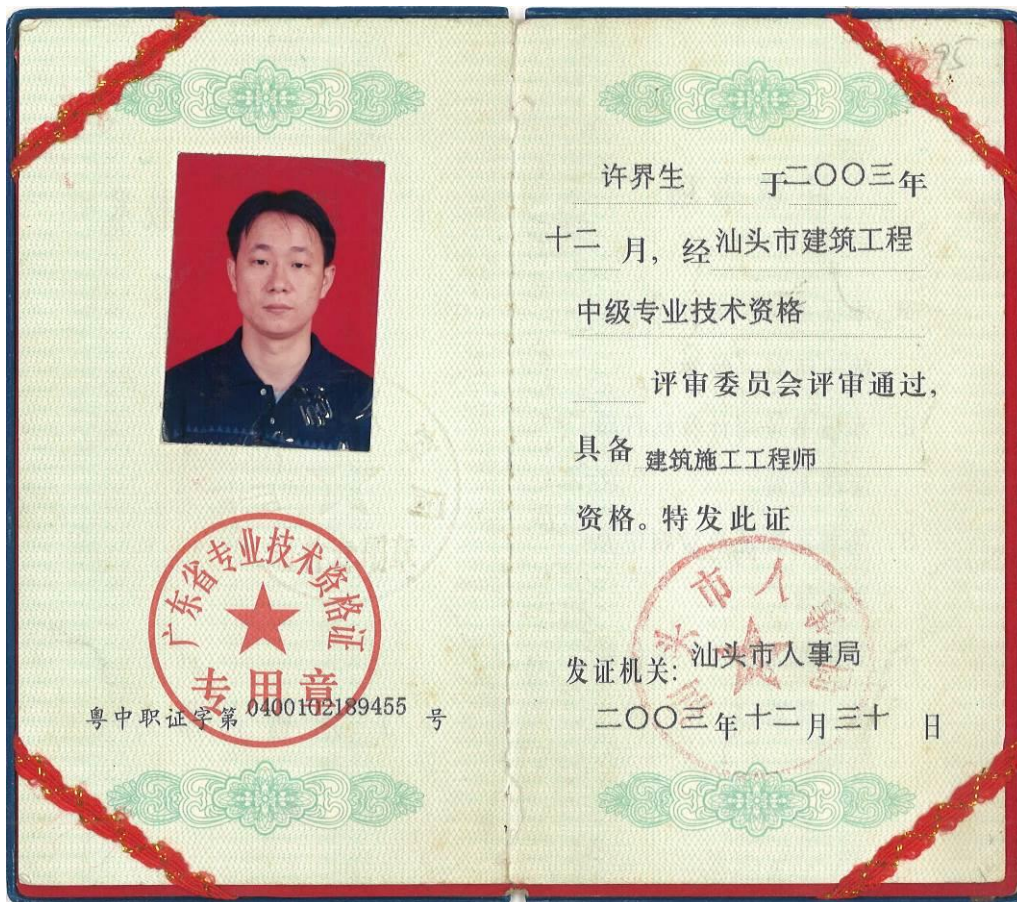 广东省专业技术资格证
专用章
粤中职证字第 0400102189455 号
95
许界生 于二〇〇三年
十二 月，经汕头市建筑工程
中级专业技术资格
评审委员会评审通过，
具备 建筑施工工程师
资格。特发此证
汕头市人事局
发证机关：汕头市人事局
二〇〇三年十二月三十 日